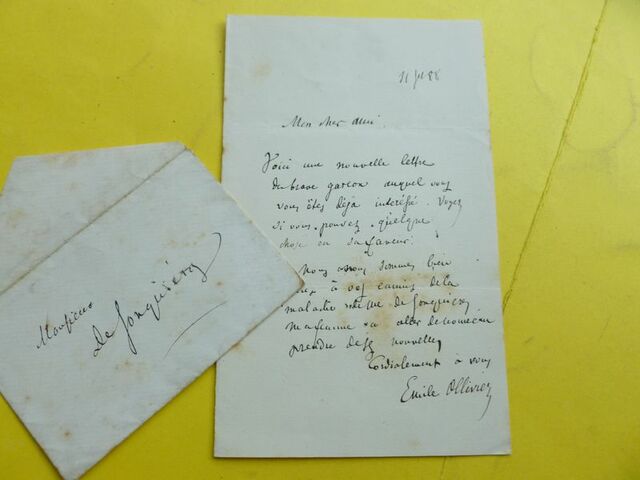 Monsieur
de Jonquières
88
Mon cher ami,
Voici une nouvelle lettre
du brave garçon auquel vous
vous êtes déjà intéressé. Voyez
si vous pouvez quelque
chose en sa faveur.
Nous nous sommes bien
à vos ennuis de la
maladie de Mme de Jonquières
ma femme va aller de nouveau
prendre de ses nouvelles
Cordialement à vous
Emile Ollivier